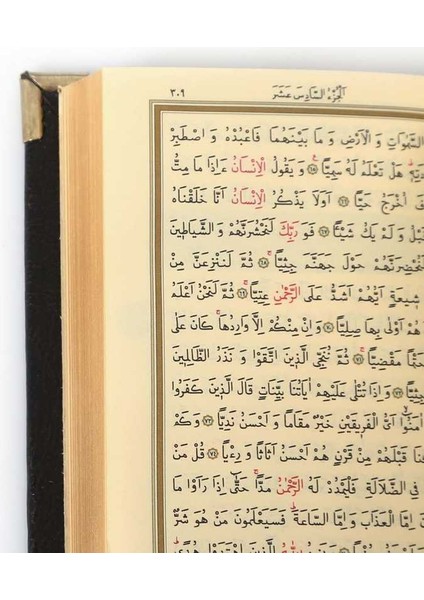 اَلْجُزْءُ السَّادِسَ عَشَرَ ٣٠٩
السَّمٰوَاتِ وَ الْاَرْضِ وَ مَا بَيْنَهُمَا فَاعْبُدْهُ وَ اصْطَبِرْ
هَلْ تَعْلَمُ لَهُ سَمِيًّا ۚ ﴿٦٥﴾ وَ يَقُولُ الْاِنْسَانُ ءَاِذَا مَا مِتُّ
اُخْرَجُ حَيًّا ﴿٦٦﴾ اَوَلَا يَذْكُرُ الْاِنْسَانُ اَنَّا خَلَقْنَاهُ
قَبْلُ وَ لَمْ يَكُ شَيْئًا ﴿٦٧﴾ فَوَ رَبِّكَ لَنَحْشُرَنَّهُمْ وَ الشَّيَاطِينَ
لَنُحْضِرَنَّهُمْ حَوْلَ جَهَنَّمَ جِثِيًّا ۚ ﴿٦٨﴾ ثُمَّ لَنَنْزِعَنَّ مِنْ
شِيعَةٍ اَيُّهُمْ اَشَدُّ عَلَى الرَّحْمٰنِ عِتِيًّا ۚ ﴿٦٩﴾ ثُمَّ لَنَحْنُ اَعْلَمُ
هُمْ اَوْلٰى بِهَا صِلِيًّا ﴿٧٠﴾ وَ اِنْ مِنْكُمْ اِلَّا وَارِدُهَا ۚ كَانَ عَلٰى
حَتْمًا مَقْضِيًّا ۚ ﴿٧١﴾ ثُمَّ نُنَجِّى الَّذِينَ اتَّقَوْا وَ نَذَرُ الظَّالِمِينَ
جِثِيًّا ﴿٧٢﴾ وَ اِذَا تُتْلٰى عَلَيْهِمْ اٰيَاتُنَا بَيِّنَاتٍ قَالَ الَّذِينَ كَفَرُوا
اٰمَنُوا اَىُّ الْفَرِيقَيْنِ خَيْرٌ مَقَامًا وَ اَحْسَنُ نَدِيًّا ﴿٧٣﴾ وَ كَمْ
قَبْلَهُمْ مِنْ قَرْنٍ هُمْ اَحْسَنُ اَثَاثًا وَ رِءْيًا ﴿٧٤﴾ قُلْ مَنْ
فِى الضَّلَالَةِ فَلْيَمْدُدْ لَهُ الرَّحْمٰنُ مَدًّا ۚ حَتّٰى اِذَا رَاَوْا مَا
اِمَّا الْعَذَابَ وَ اِمَّا السَّاعَةَ ۗ فَسَيَعْلَمُونَ مَنْ هُوَ شَرٌّ